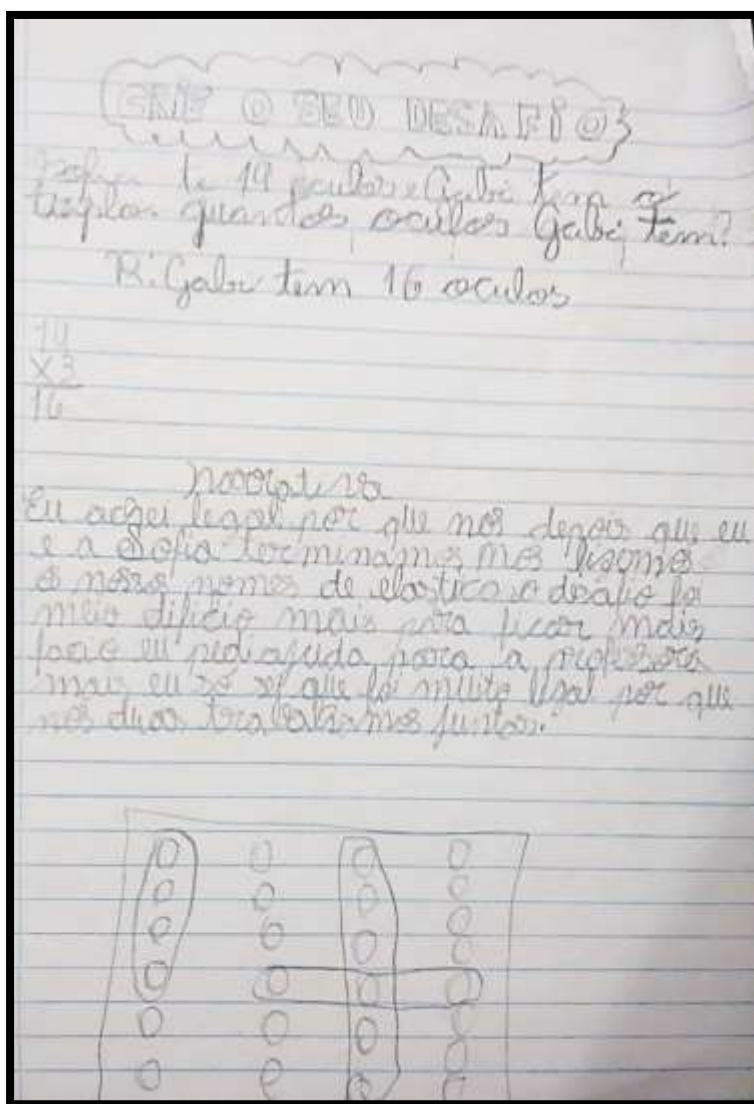 CRIE O SEU DESAFIO
te 14 oculos e Gabi tem o
triplo. quantos oculos Gabi tem?
R: Gabi tem 16 oculos
14
X3
16
narrativa
Eu achei legal por que nos depois que eu
e a Sofia terminamos nos fizemos
o nosso nomes de elastico o desafio foi
meio dificio mais para ficar mais
facio eu pedi ajuda para a professora
mais eu so sei que foi muito legal por que
nos duas trabalhamos juntas.